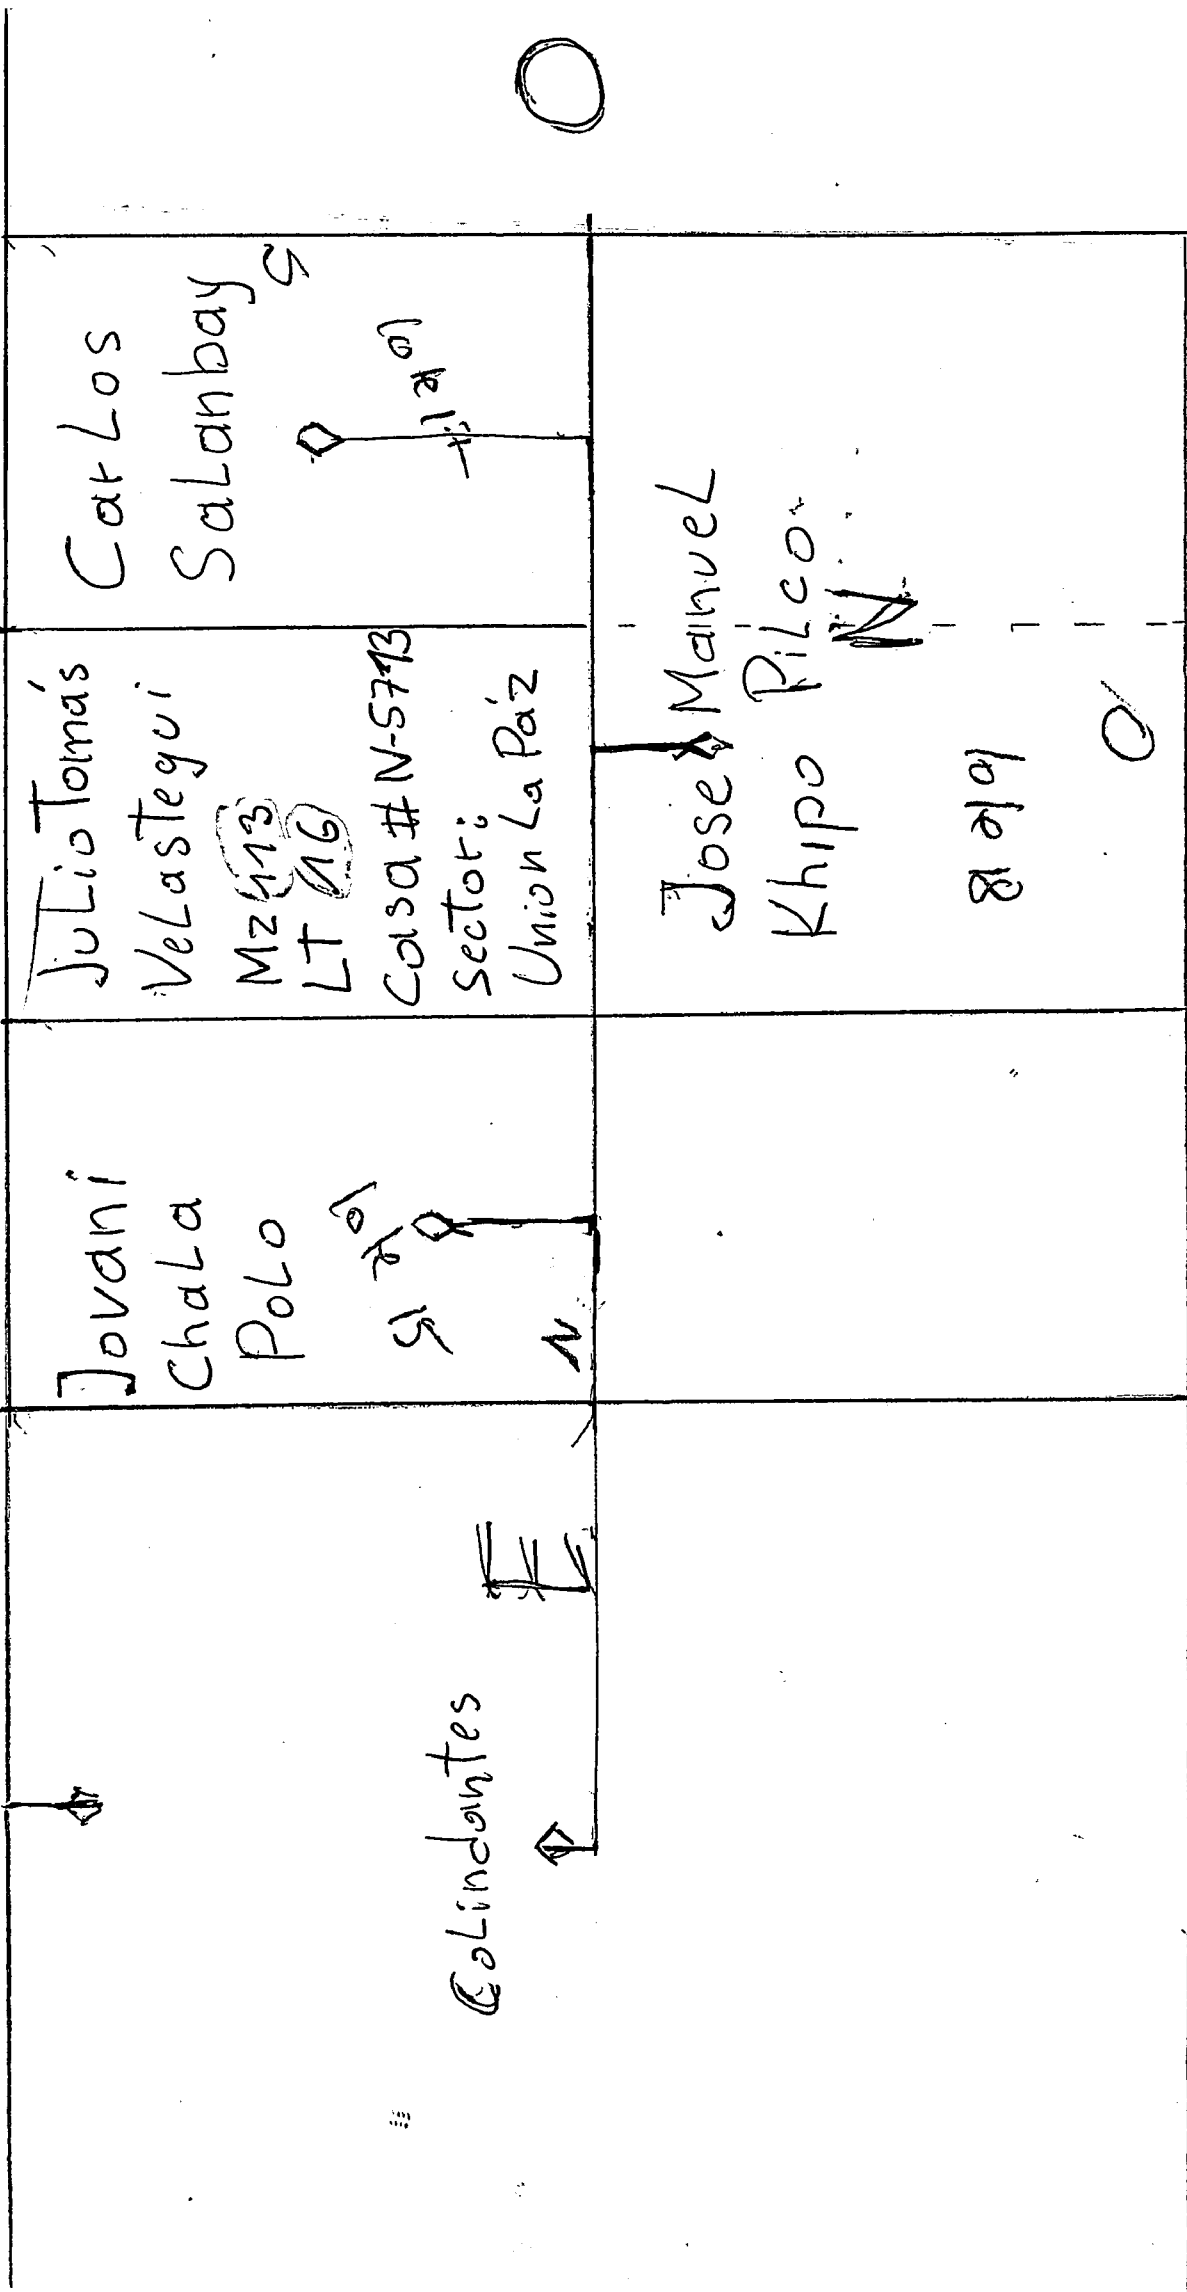 Colindantes
E
Jovani
Chala
Polo
N
Julio Tomás
Velastegui
Mz 113
LT 16
Casa # N-5713
Sector:
Union La Páz
Carlos
Salanbay
S
Jose Manuel
Khipo Pilco
N
O
O